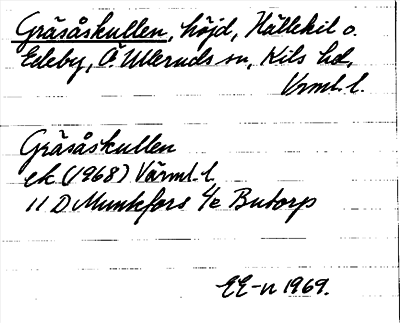 Gräsåskullen, höjd, Hällekil o.
Edeby, Ö. Ulleruds sn, Kils hd,
Vrml. l.
Gräsåskullen
ek (1968) Värml. l
11 D Munkfors 4e Butorp
EE-n 1969.